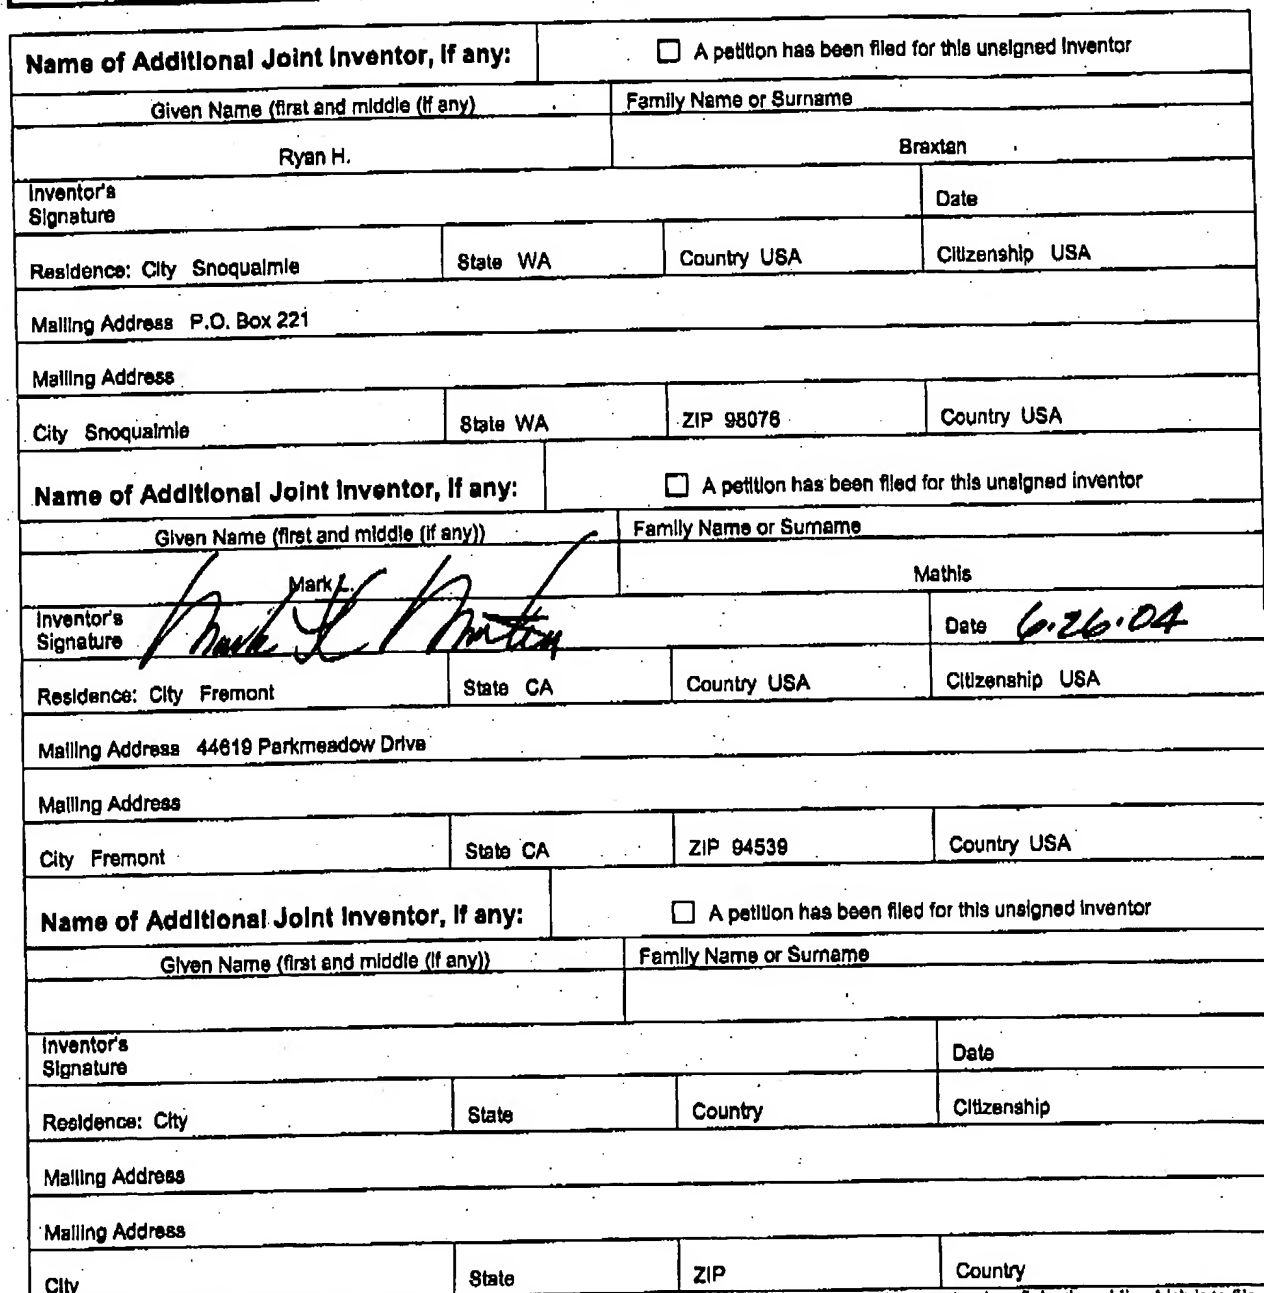 Name of Additional Joint Inventor, if any: ☐ A petition has been filed for this unsigned inventor
Given Name (first and middle (if any) Family Name or Surname
Ryan H. Braxtan
Inventor's
Signature Date
Residence: City Snoqualmie State WA Country USA Citizenship USA
Mailing Address P.O. Box 221
Mailing Address
City Snoqualmie State WA ZIP 98076 Country USA
Name of Additional Joint Inventor, if any: ☐ A petition has been filed for this unsigned inventor
Given Name (first and middle (if any)) Family Name or Surname
Mark L. Mathis
Inventor's
Signature Date 6.26.04
Residence: City Fremont State CA Country USA Citizenship USA
Mailing Address 44619 Parkmeadow Drive
Mailing Address
City Fremont State CA ZIP 94539 Country USA
Name of Additional Joint Inventor, if any: ☐ A petition has been filed for this unsigned inventor
Given Name (first and middle (if any)) Family Name or Surname
Inventor's
Signature Date
Residence: City State Country Citizenship
Mailing Address
Mailing Address
City State ZIP Country